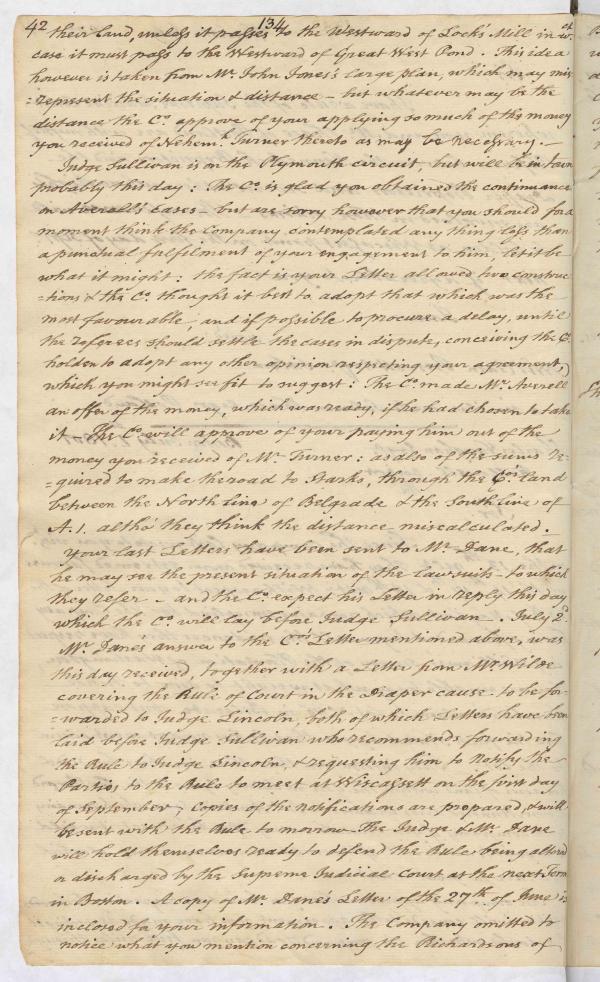 42 134
their Land, unless it passes to the Westward of Lock's Mill in wch.
case it must pass to the Westward of Great West Pond. This idea
however is taken from Mr. John Jones's large plan, which may mis
=represent the situation & distance - but whatever may be the
distance the Co. approve of your applying so much of the money
you received of Nehemh. Turner thereto as may be necessary.—
Judge Sullivan is on the Plymouth circuit, but will be in town
probably this day: The Co. is glad you obtained the continuance
on Averall's cases - but are sorry however that you should for a
moment think the Company contemplated any thing less than
a punctual fulfilment of your engagement to him, let it be
what it might: the fact is your Letter allowed two construc
=tions & the Co. thought it best to adopt that which was the
most favourable, and if possible to procure a delay, until
the referees should settle the cases in dispute, conceiving the Co.
holden to adopt any other opinion respecting your agreement,
which you might see fit to suggest: The Co. made Mr. Averell
an offer of the money, which was ready, if he had chosen to take
it - The Co. will approve of your paying him out of the
money you received of Mr. Turner: as also of the sums re
=quired to make the road to Starks, through the Cos. land
between the North Line of Belgrade & the South line of
A. 1. altho' they think the distance miscalculated.
Your last Letters have been sent to Mr. Dane, that
he may see the present situation of the lawsuits - to which
they refer - and the Co. expect his Letter in reply this day
which the Co. will lay before Judge Sullivan. July 2d.
Mr. Dane's answer to the Cos. Letter mentioned above, was
this day received, together with a Letter from Mr. Wilde
covering the Rule of Court in the Draper cause - to be for
=warded to Judge Lincoln, both of which Letters have been
laid before Judge Sullivan who recommends forwarding
the Rule to Judge Lincoln, & requesting him to Notify the
Parties to the Rule to meet at Wiscassett on the first day
of September; copies of the notifications are prepared, & will
be sent with the Rule to morrow. The Judge & Mr. Dane
will hold themselves ready to defend the Rule being altered
or discharged by the Supreme Judicial Court at the next Term
in Boston. A copy of Mr. Dane's Letter of the 27th. of June is
inclosed for your information. The Company omitted to
notice what you mention concerning the Richardsons of